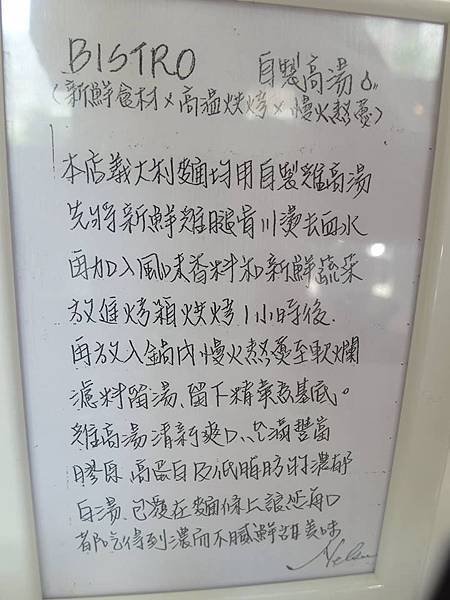 BISTRO 自製高湯
(新鮮食材×高溫烘烤×慢火熬煮)
本店義大利麵均用自製雞高湯
先將新鮮雞腿骨川燙去血水
再加入風味香料和新鮮蔬菜
放進烤箱烘烤1小時後.
再放入鍋內慢火熬煮至軟爛
濾料留湯、留下精華為基底。
雞高湯清新爽口、充滿豐富
膠原高蛋白及低脂肪的濃郁
白湯.包覆在麵條上讓您每口
都吃得到濃而不膩鮮甜美味